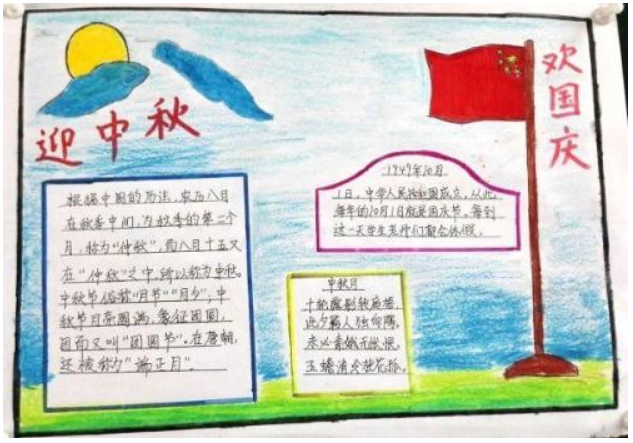 迎中秋
欢国庆
根据中国的历法,农历八月
在秋季中间,为秋季的第二个
月,称为“仲秋”,而八月十五又
在“仲秋”之中,所以称为中秋。
中秋节俗称“月节”“月夕”,中
秋节月亮圆满,象征团圆,
因而又叫“团圆节”。在唐朝,
还被称为“端正月”。
1949年10月
1日,中华人民共和国成立,从此,
每年的10月1日就是国庆节,每到
这一天学生老师们都会休假。
中秋月
十轮霜影转庭梧,
此夕羁人独向隅。
未必素娥无怅恨,
玉蟾清冷桂花孤。